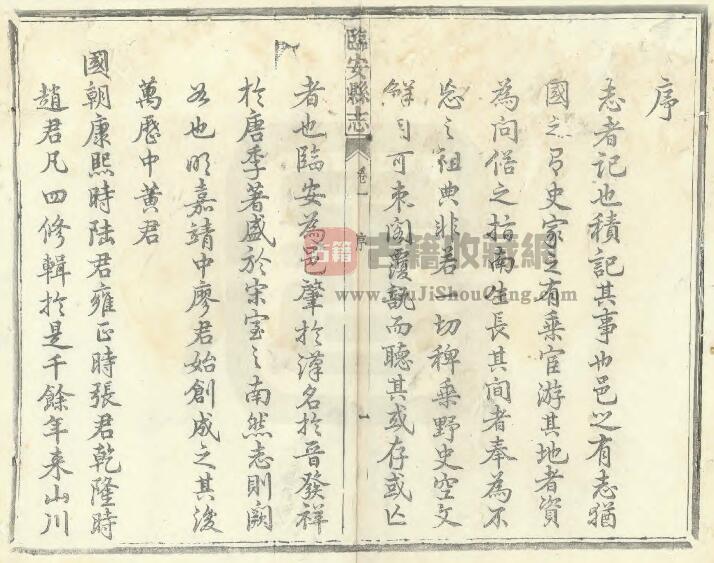 序
志者記也積記其事也邑之有志猶
國之有史家之有乘宦游其地者資
為問俗之指南生長其間者奉為不
忘之祖典非若一切稗乘野史空文
鮮用可束閣覆瓿而聽其或存或亡
臨安縣志
卷一
序
一
者也臨安為邑肇於漢名於晉發祥
於唐季著盛於宋室之南然志則闕
如也明嘉靖中廖君始創成之其後
萬歷中黃君
國朝康熙時陸君雍正時張君乾隆時
趙君凡四修輯於是千餘年來山川
古籍
古籍收藏網
www.GuJiShouCang.com